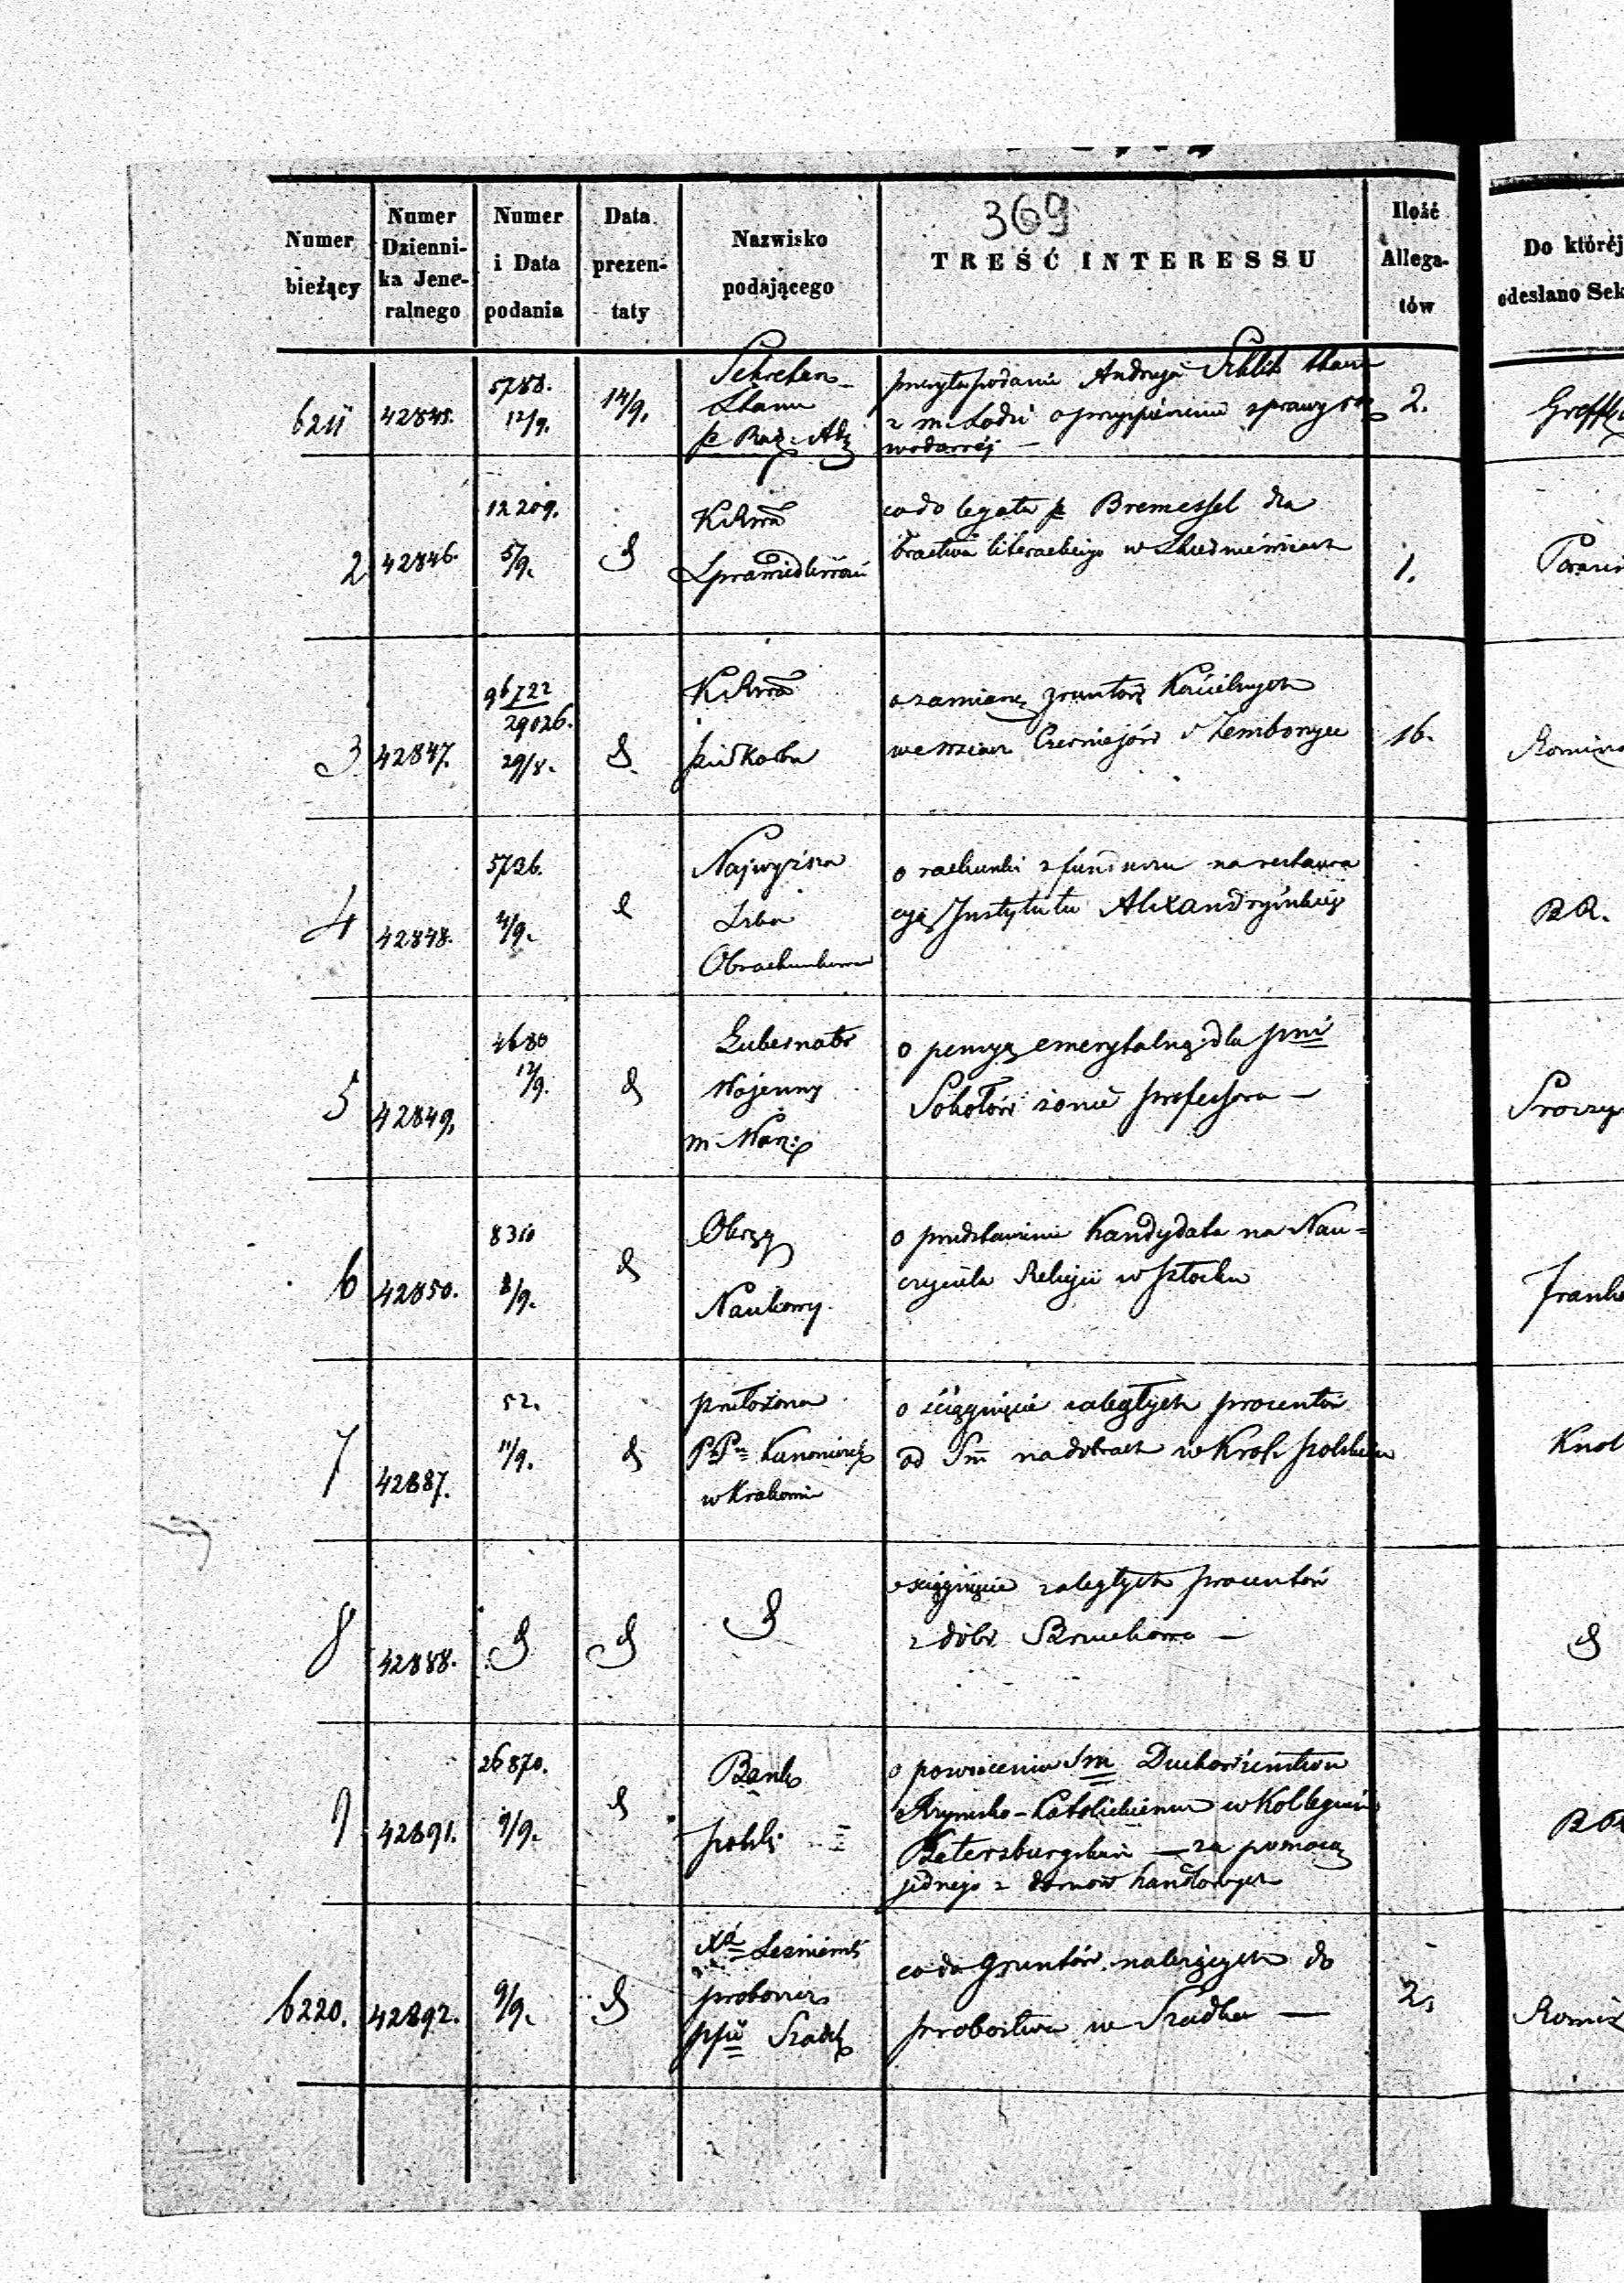 369
Numer bieżący
Numer Dzienni- ka Jene- ralnego
Numer i Data podania
Data prezen- taty
Nazwisko podającego
TREŚĆ INTERESSU
Ilość Allega- tów
Do której odesłano Sek
6211 42845. 5788. 12/9. 14/9.
Sekretarz
Stanu
podanie Andrzeja
z m. Łodzi o przyspieszenie sprawy roz
wodowej —
2.
2 42846. 12209. 5/9.
KRrra
Sprawiedliwości
co do legatu p Bremessel dla
bractwa literackiego w
1.
3 42847. 96722 29026. 29/8.
KRrra
o zamianę gruntów Kościelnych
we wsiach Czerniejów i Zemborzyce
16.
4 42848. 5736. 4/9.
Najwyższa
Izba
Obrachunkowa
o rachunki z funduszu na restaura
cyą Instytutu Alexandryńskiego
R.R.
5 42849. 4680 12/9.
Gubernator
Wojenny
m. Warz:
o pensyą emerytalną dla pni
Sokołów żonie professora —
6 42850. 8310 8/9.
Okrąg
Naukowy.
o przedstawienie kandydata na Nau-
czyciela Religii w Płocku
7 42887. 52. 11/9.
przełożona
PP Kanoniczek
w Krakowie
o ściągnięcie zaległych procentów
od Smm na dobrach w Król. polskim
8 42888.
o ściągnięcie zaległych procentów
z dóbr —
9 42891. 26870. 9/9.
Bank
polski
o Smm Duchowieństwu
Rzymsko-Katolickiemu w Kollegium
Petersburgskim — za pomocą
jednego z domów handlowych
6220. 42892. 9/9.
proboszcz
ppii Szadek
co do gruntów należących do
probostwa w Szadku —
2.